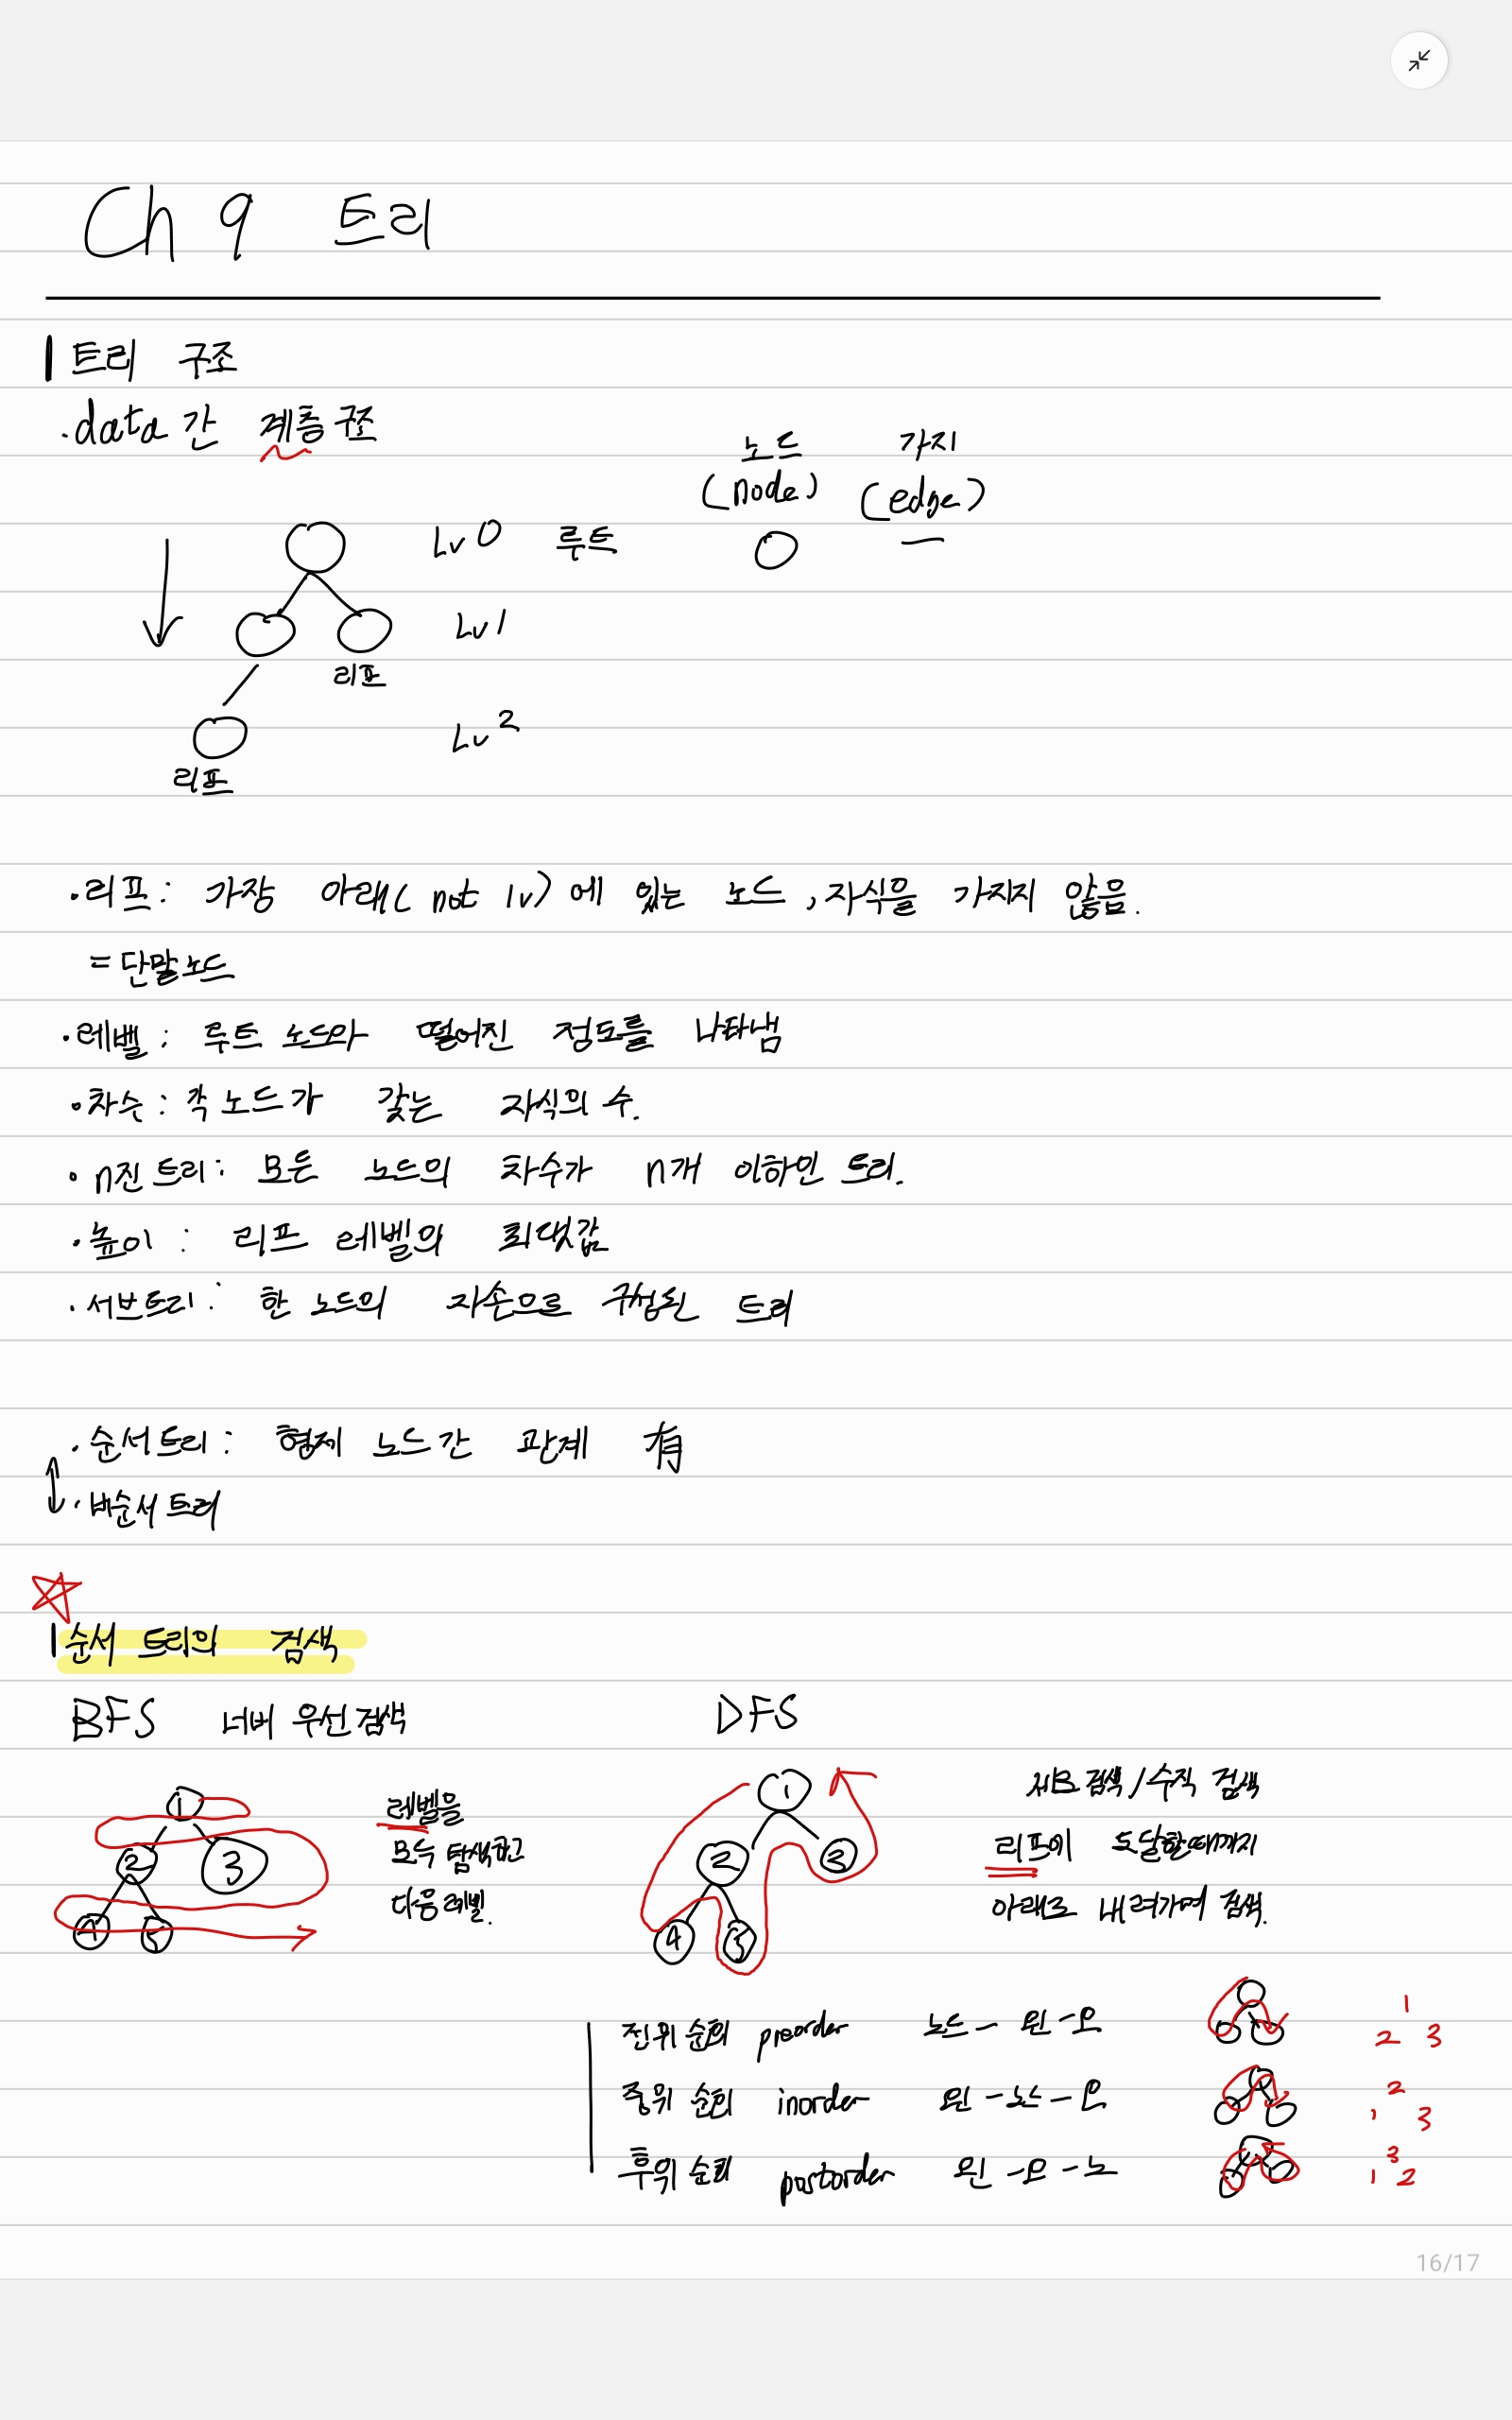 Ch 9 트리
트리 구조
·data 간 계층구조
노드 가지
(node) (edge)
Lv0 루트
Lv1
리프
Lv2
리프
·리프: 가장 아래(not lv)에 있는 노드, 자식을 가지지 않음.
=단말노드
·레벨: 루트 노드와 떨어진 정도를 나타냄
·차수: 각 노드가 갖는 자식의 수.
·n진 트리: 모든 노드의 차수가 n개 이하인 트리.
·높이: 리프 레벨의 최댓값
·서브트리: 한 노드의 자손으로 구성된 트리
·순서트리: 형제 노드간 관계 有
·비순서 트리
순서 트리의 검색
BFS 너비 우선검색
DFS
1
2 3
4 5
레벨을
모두 탐색하고
다음 레벨.
1
2 3
4 5
세로 검색/수직 검색
리프에 도달할때까지
아래로 내려가며 검색.
전위 순회 preorder 노드-왼-오
1
2 3
중위 순회 inorder 왼-노드-오
2
1 3
후위 순회 postorder 왼-오-노
3
1 2
16/17